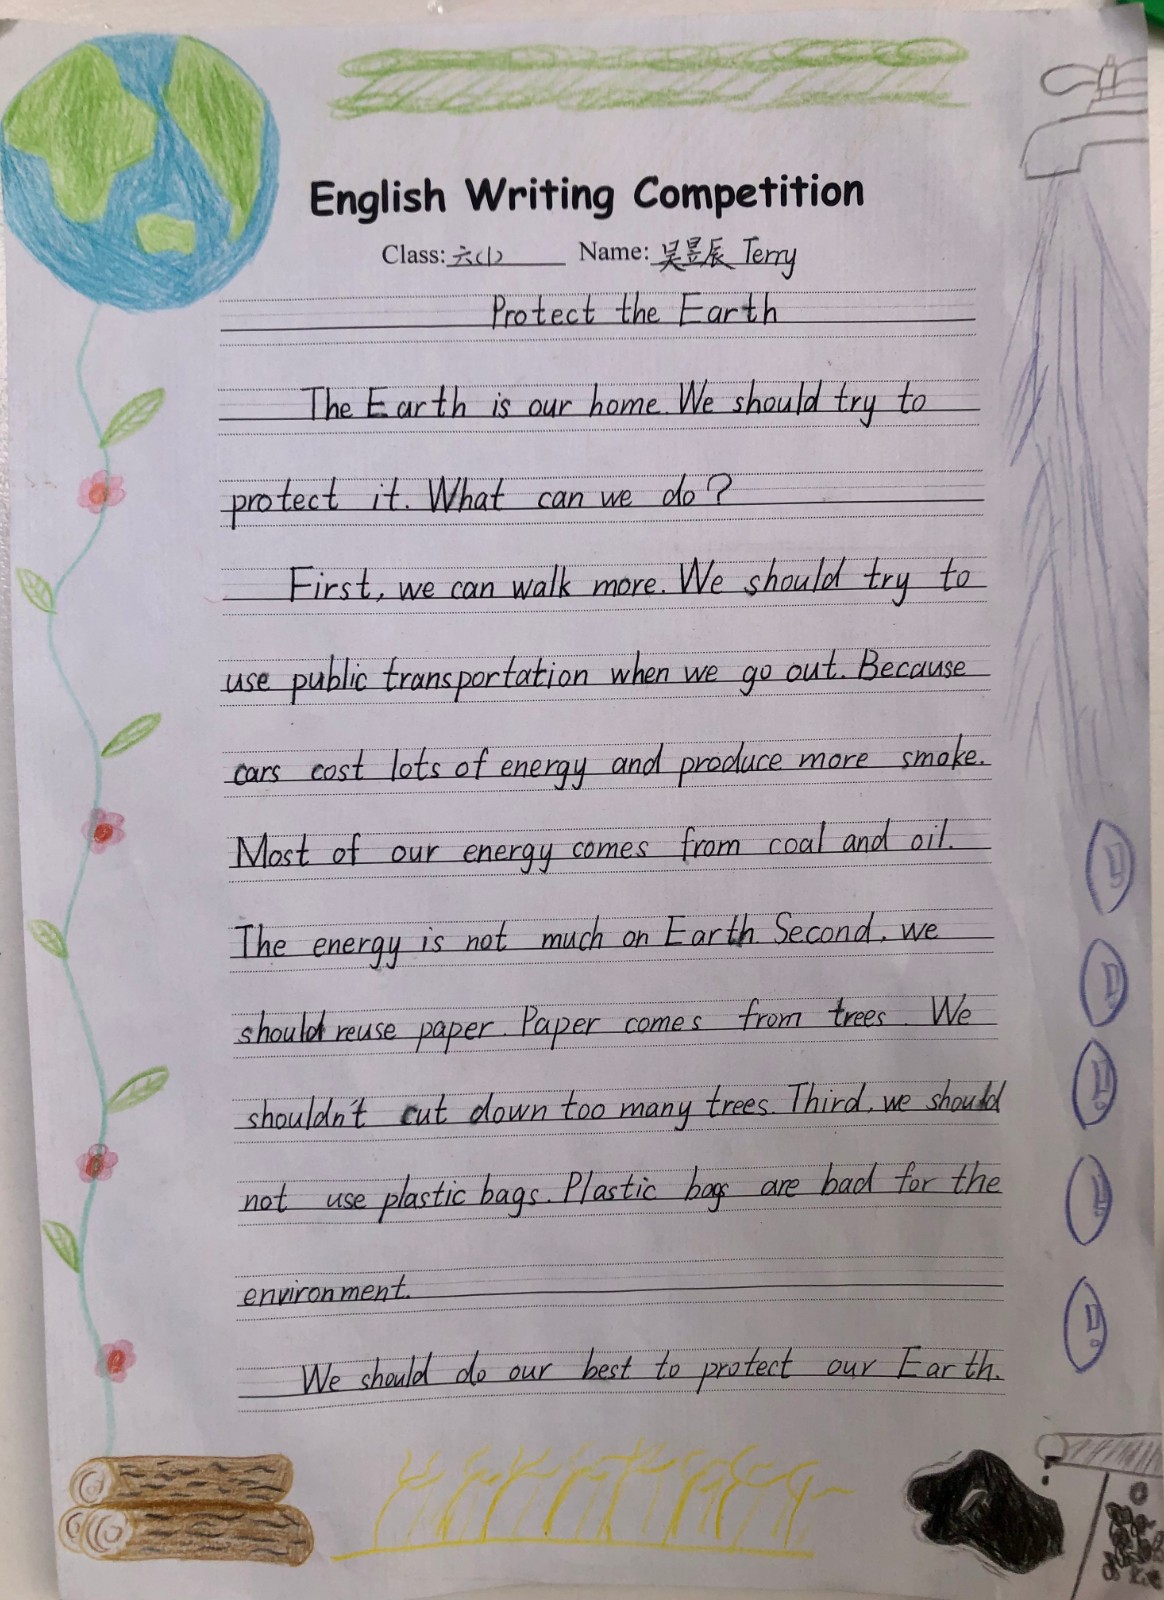 English Writing Competition
Class: 六(1) Name: 吴昱辰 Terry
Protect the Earth
The Earth is our home. We should try to
protect it. What can we do?
First, we can walk more. We should try to
use public transportation when we go out. Because
cars cost lots of energy and produce more smoke.
Most of our energy comes from coal and oil.
The energy is not much on Earth. Second, we
should reuse paper. Paper comes from trees. We
shouldn't cut down too many trees. Third, we should
not use plastic bags. Plastic bags are bad for the
environment.
We should do our best to protect our Earth.